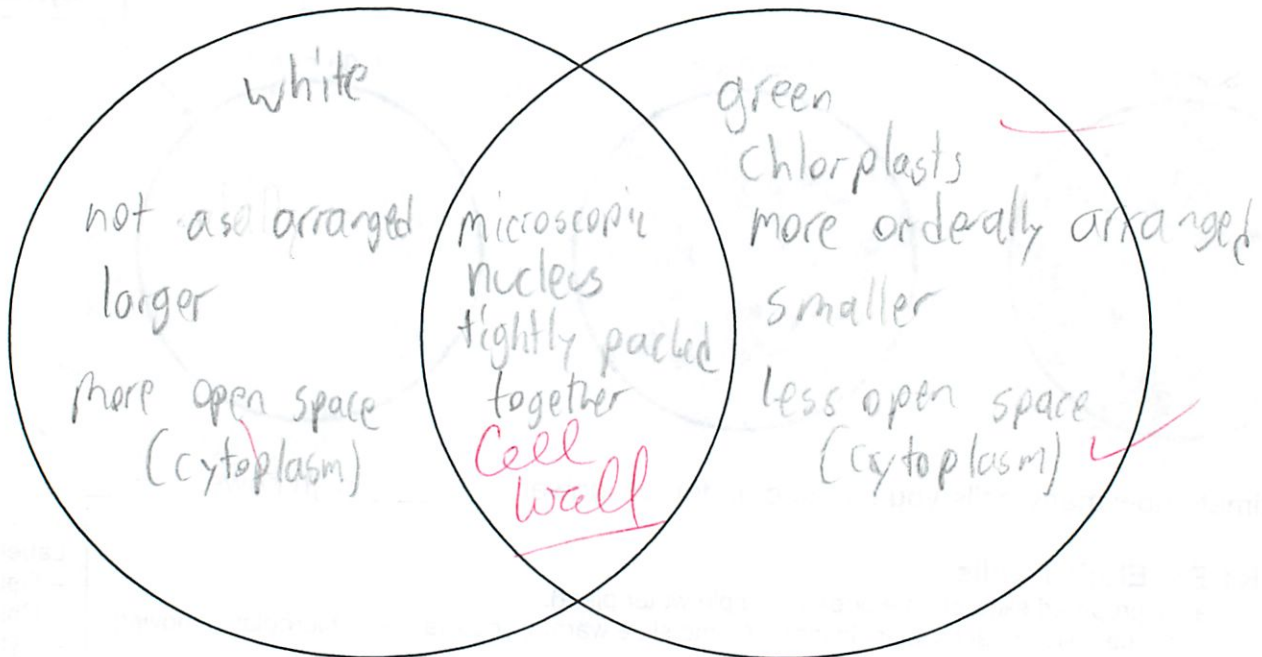 white
not as arranged
larger
more open space
(cytoplasm)
microscopic
nucleus
tightly packed
together
Cell
wall
green
chlorplasts
more orderally arranged
smaller
less open space
(cytoplasm)